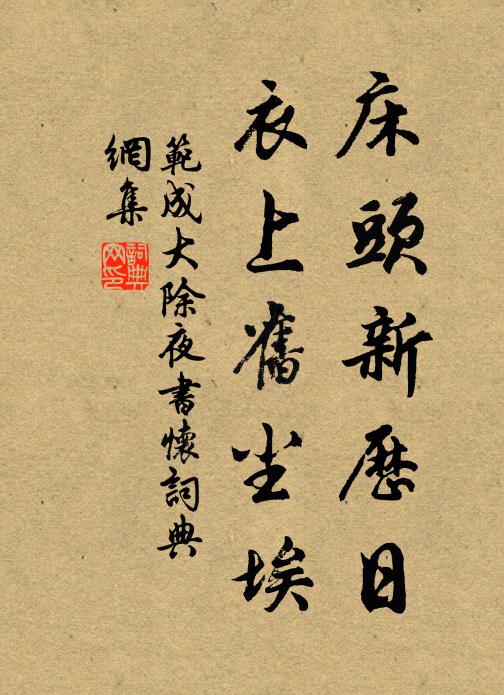 床頭新歷日
衣上舊尘埃
範成大除夜書懷詞典
網集
詞典
网印